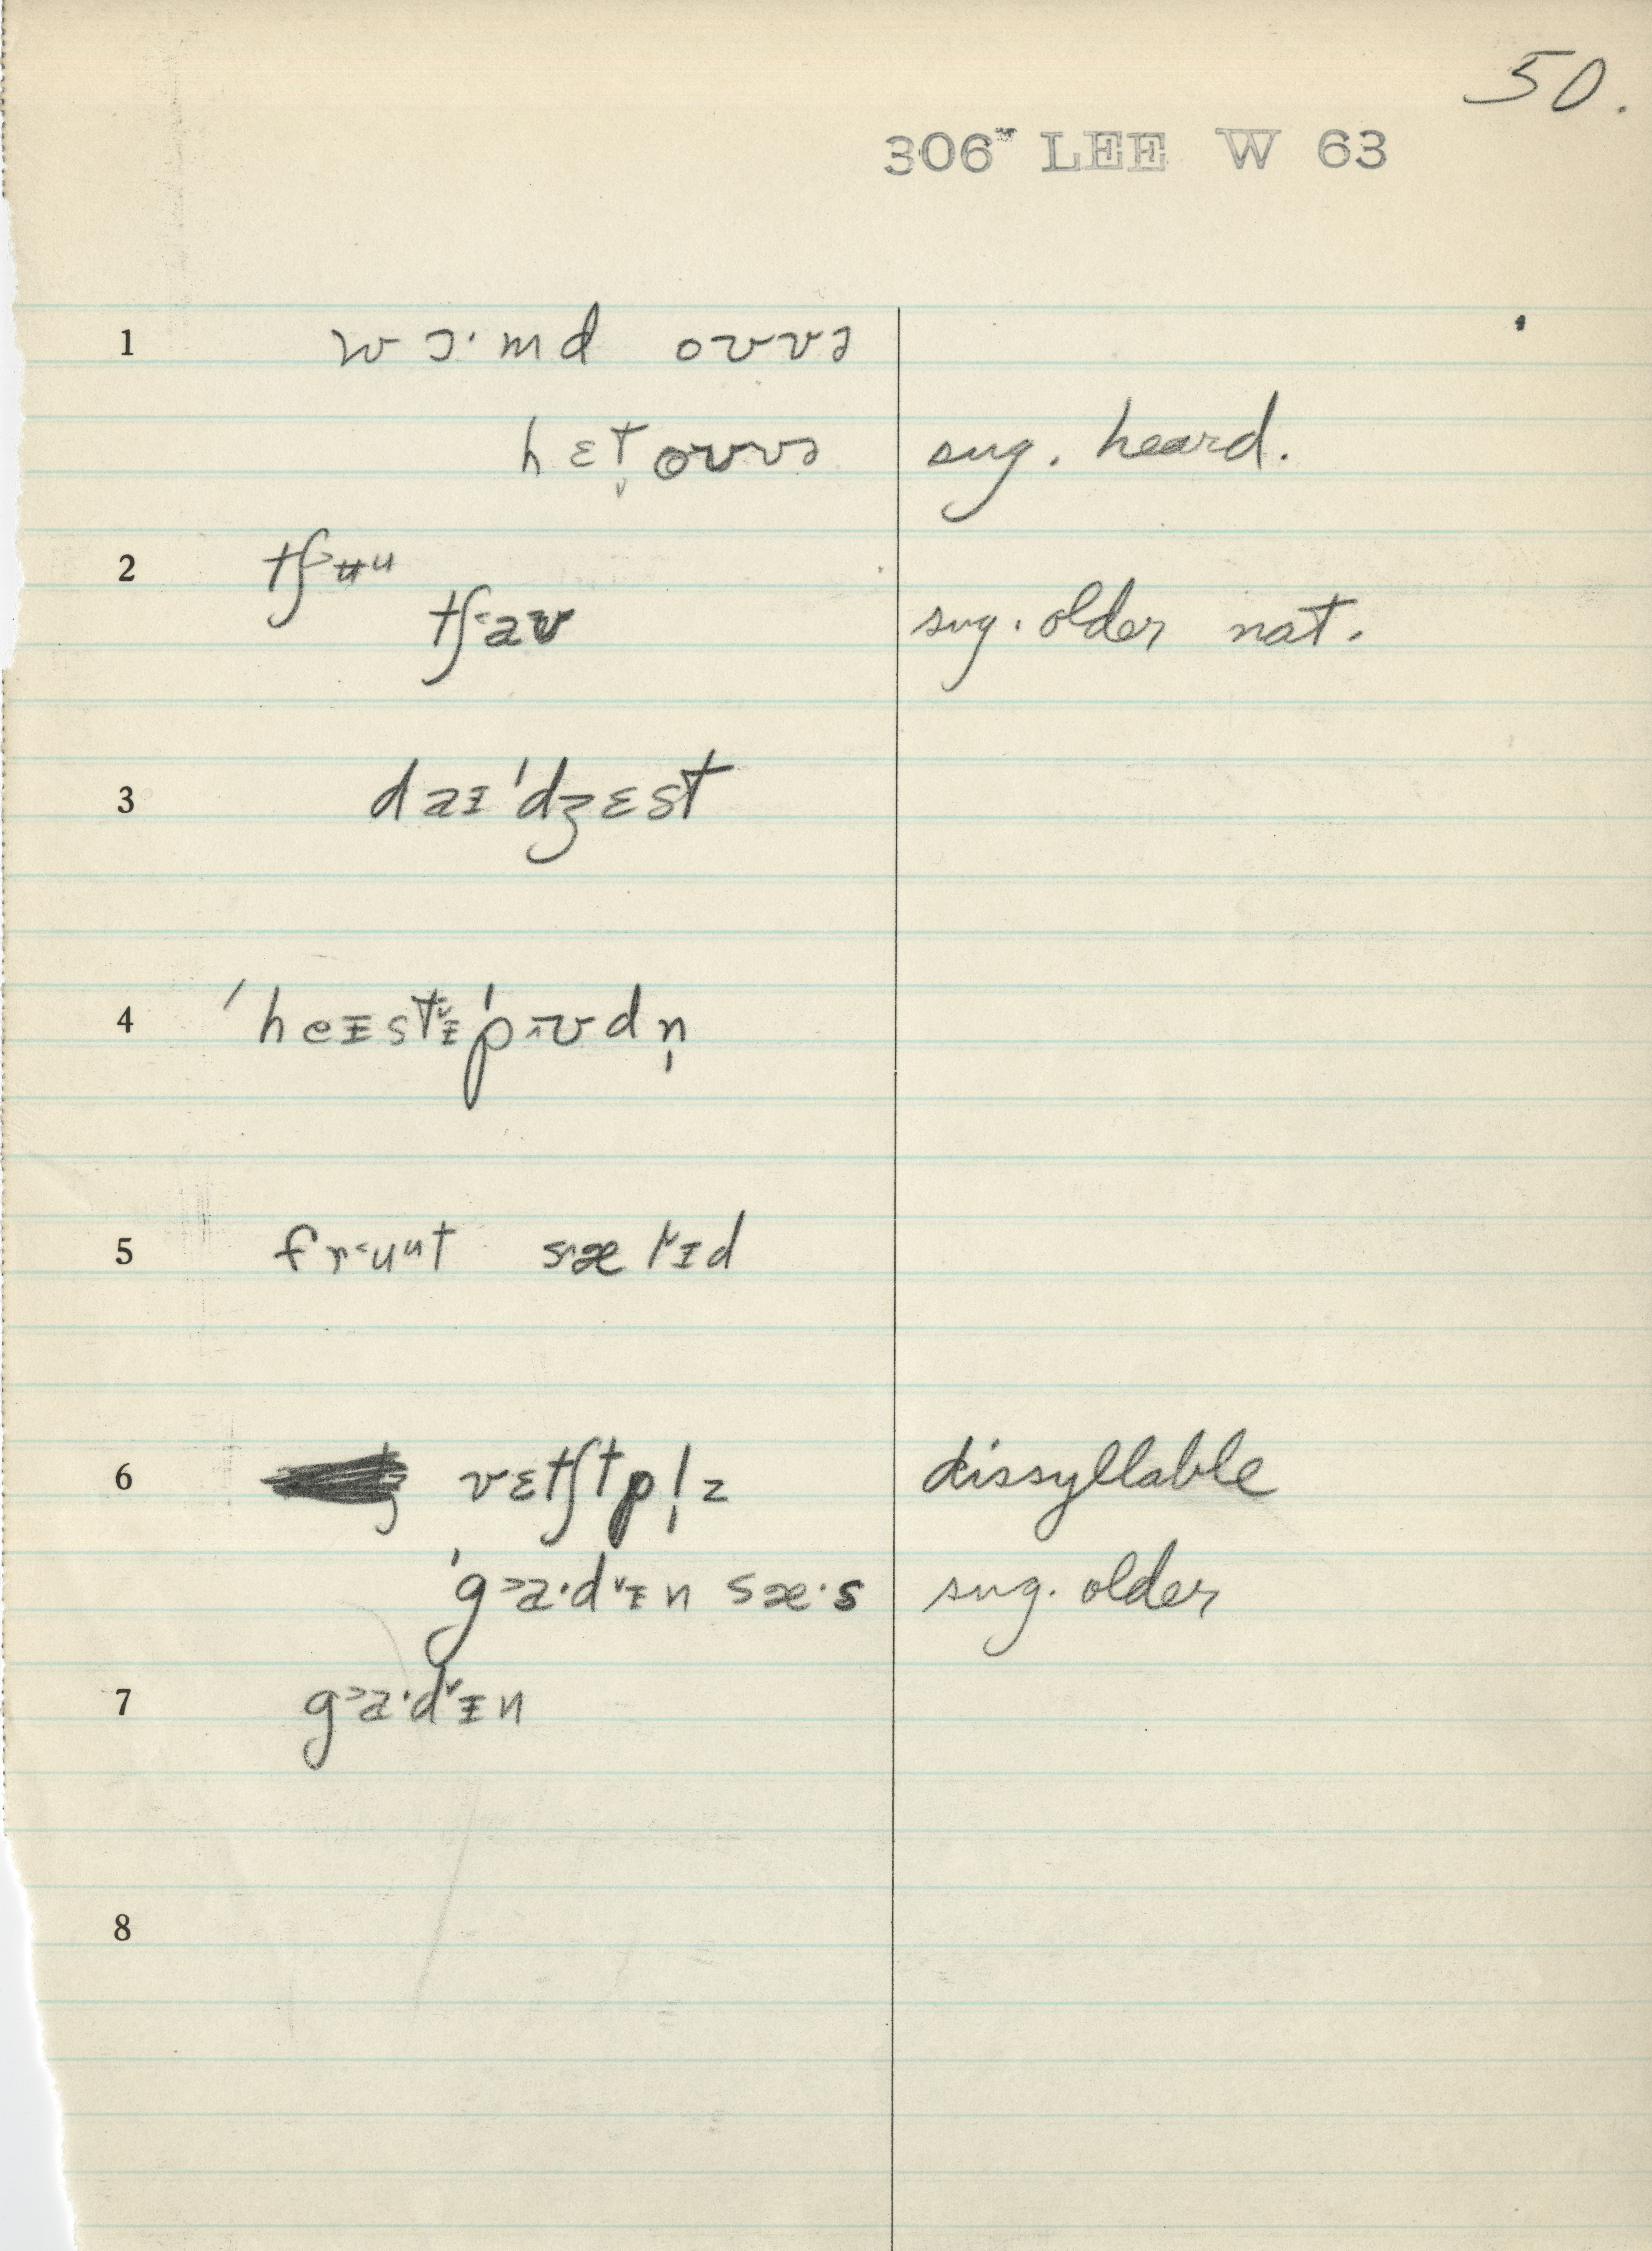 50.
306" LEE W 63
1 wɔ·md oʊvə
hɛt̬oʊvə sug. heard.
2 tʃ˃ʉu
tʃ˂aʊ sug. older nat.
3 daɪ'dʒɛst
4 'heɪstɪ˅'pʊdn̩
5 fr˂uut sælɪd
6 vɛtʃtpl̩z dissyllable
'g˃a·d˅ɪn sæ·s sug. older
7 g˃a·d˅ɪn
8